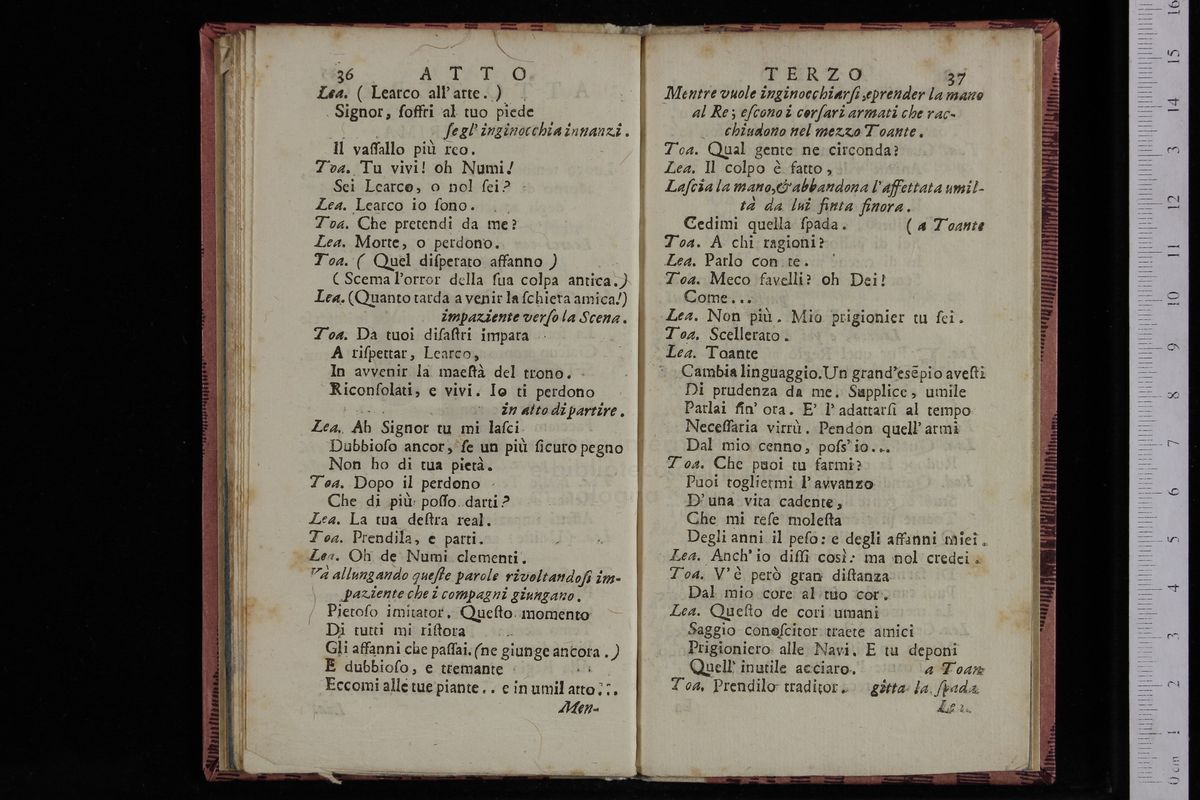 36 ATTO
Lea. ( Learco all' arte. )
Signor, soffri al tuo piede
segl' inginocchia innanzi.
Il vassallo più reo.
Toa. Tu vivi! oh Numi!
Sei Learco, o nol sei?
Lea. Learco io sono.
Toa. Che pretendi da me?
Lea. Morte, o perdono.
Toa. ( Quel disperato affanno )
( Scema l'orror della sua colpa antica.)
Lea. (Quanto tarda a venir la schiera amica!)
impaziente verso la Scena.
Toa. Da tuoi disastri impara
A rispettar, Learco,
In avvenir la maestà del trono.
Riconsolati, e vivi. Io ti perdono
in atto di partire.
Lea. Ah Signor tu mi lasci
Dubbioso ancor, se un più sicuro pegno
Non ho di tua pietà.
Toa. Dopo il perdono
Che di più posso darti?
Lea. La tua destra real.
Toa. Prendila, e parti.
Lea. Oh de Numi clementi.
Và allungando queste parole rivoltandosi im-
paziente che i compagni giungano.
Pietoso imitator. Questo momento
Di tutti mi ristora
Gli affanni che passai. (ne giunge ancora.)
E dubbioso, e tremante
Eccomi alle tue piante.. e in umil atto...
Men-
TERZO 37
Mentre vuole inginocchiarsi, e prender la mano
al Re; escono i corsari armati che rac-
chiudono nel mezzo Toante.
Toa. Qual gente ne circonda?
Lea. Il colpo è fatto,
Lascia la mano, & abbandona l'affettata umil-
tà da lui finta finora.
Cedimi quella spada. ( a Toante
Toa. A chi ragioni?
Lea. Parlo con te.
Toa. Meco favelli? oh Dei!
Come...
Lea. Non più. Mio prigionier tu sei.
Toa. Scellerato.
Lea. Toante
Cambia linguaggio. Un grand'esẽpio avesti
Di prudenza da me. Supplice, umile
Parlai fin' ora. E' l' adattarsi al tempo
Necessaria virtù. Pendon quell' armi
Dal mio cenno, poss' io...
Toa. Che puoi tu farmi?
Puoi togliermi l'avvanzo
D'una vita cadente,
Che mi rese molesta
Degli anni il peso: e degli affanni miei.
Lea. Anch' io dissi così: ma nol credei.
Toa. V' è però gran distanza
Dal mio core al tuo cor.
Lea. Questo de cori umani
Saggio conoscitor traete amici
Prigioniero alle Navi. E tu deponi
Quell' inutile acciaro. a Toan
Toa. Prendilo traditor. gitta la spada
Lea.